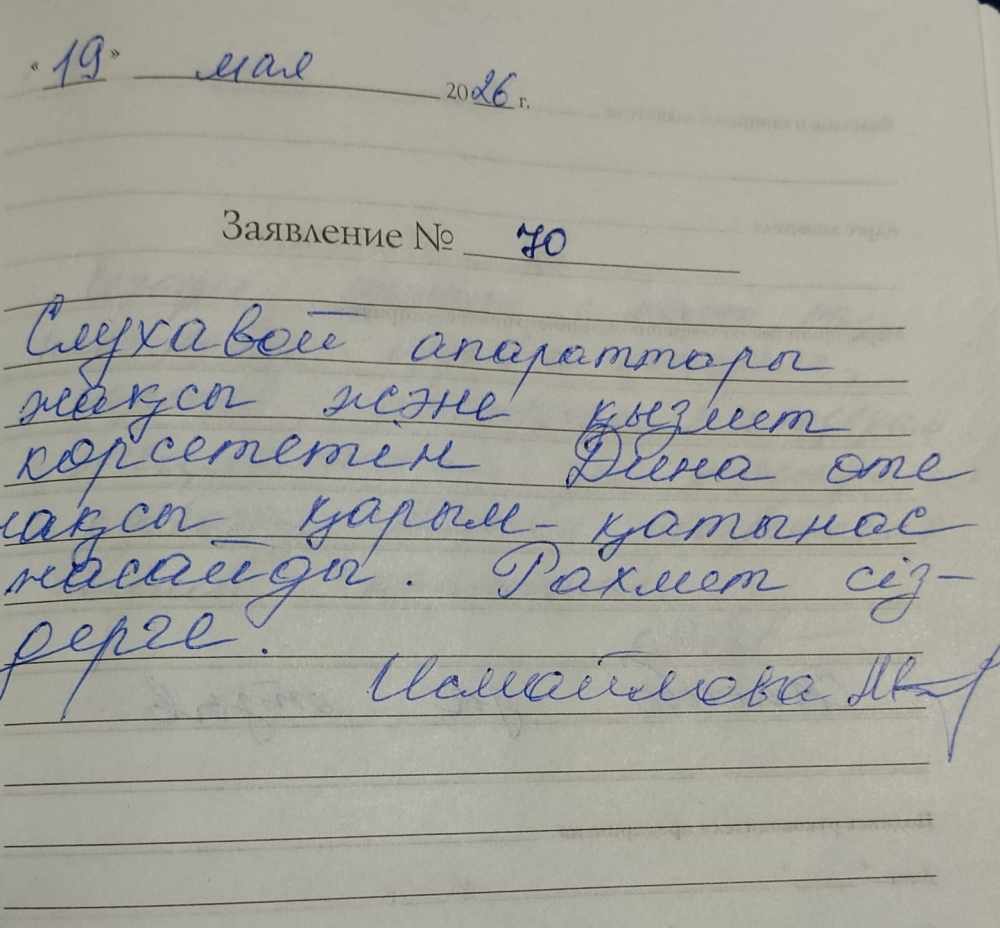 «19» мая 2026 г.
Заявление № 70
Слухавой апараттары
жақсы және қызмет
корсететін Дина оте
жақсы қарым-қатынас
жасайды. Рахмет сіз-
дерге.
Исмаилова